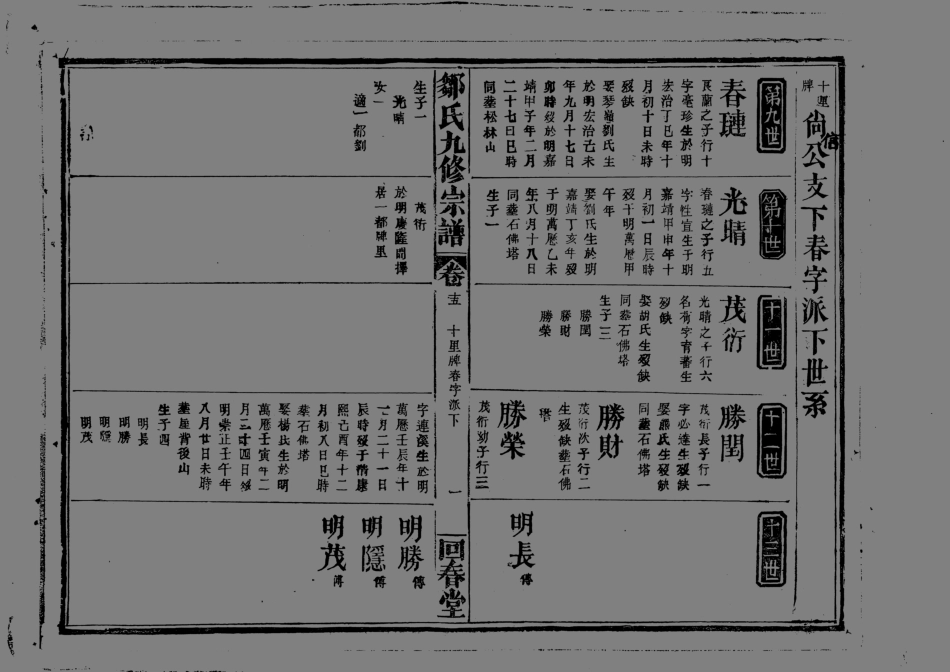 十里牌
尙公支下春字派下世系
信
第九世
春璉
良蘭之子行十
字毫珍生於明
宏治丁巳年十
月初十日未時
歿缺
娶琴嶺劉氏生
於明宏治乙未
年九月十七日
卯時歿於明嘉
靖甲子年二月
二十七日巳時
同塟松林山
生子一
光晴
女一
適一都劉
第十世
光晴
春璉之子行五
字性宜生于明
嘉靖甲申年十
月初一日辰時
歿于明萬曆甲
午年
娶劉氏生於明
嘉靖丁亥年歿
于明萬曆乙未
年八月十八日
同塟石佛塔
生子一
茂衍
於明慶隆間擇
居一都牌里
十一世
茂衍
光晴之子行六
名有字育蕃生
歿缺
娶胡氏生歿缺
同塟石佛塔
生子三
勝閏
勝財
勝榮
十二世
勝閏
茂衍長子行一
字必達生歿缺
娶龎氏生歿缺
同塟石佛塔
勝財
茂衍次子行二
生歿缺塟石佛
塔
勝榮
茂衍幼子行三
字連溪生於明
萬曆壬辰年十
一月二十一日
辰時歿于淸康
熙己酉年十二
月初八日巳時
塟石佛塔
娶楊氏生於明
萬曆壬寅年二
月二十四日歿
明崇正壬午年
八月廿日未時
塟屋背後山
生子四
明長
明勝
明隱
明茂
十三世
明長傳
明勝傳
明隱傳
明茂傳
鄒氏九修宗譜
卷
十里牌春字派下
一
回春堂